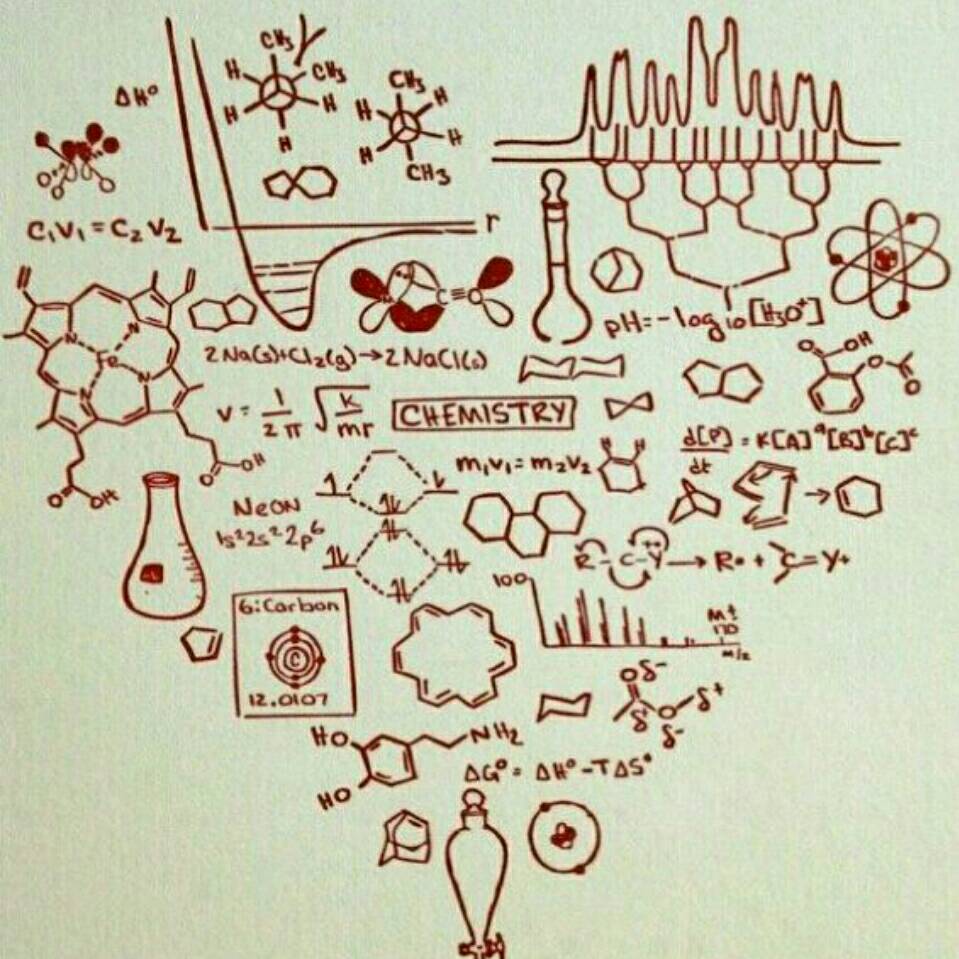 CH₃
H CH₃
H H
H
CH₃
H H
H H
CH₃
ΔH°
r
C₁V₁ = C₂ V₂
C≡O
pH = -log₁₀ [H₃O⁺]
N N
Fe
N N
OH
O
O OH
2Na(s)+Cl₂(g)→2NaCl(s)
O OH
O
O
ν = 1/2π √k/mr
CHEMISTRY
d[P]/dt = K[A]ᵃ[B]ᵇ[C]ᶜ
m₁v₁ = m₂v₂
H H
NEON
1s² 2s² 2p⁶
R - C - Y → R• + C = Y•
100
M⁺
170
m/z
6: Carbon
C
12.0107
Oδ⁻
δ⁺ O δ⁺
δ⁻
HO NH₂
HO
ΔG° = ΔH° - TΔS°